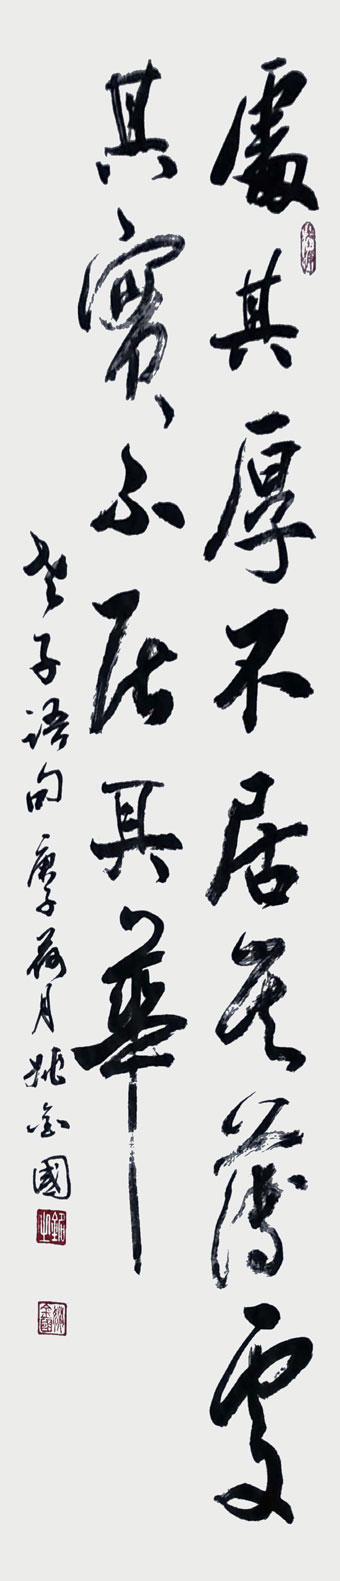 處其厚不居其薄處
其實不居其華
老子語句庚子荷月姚金國